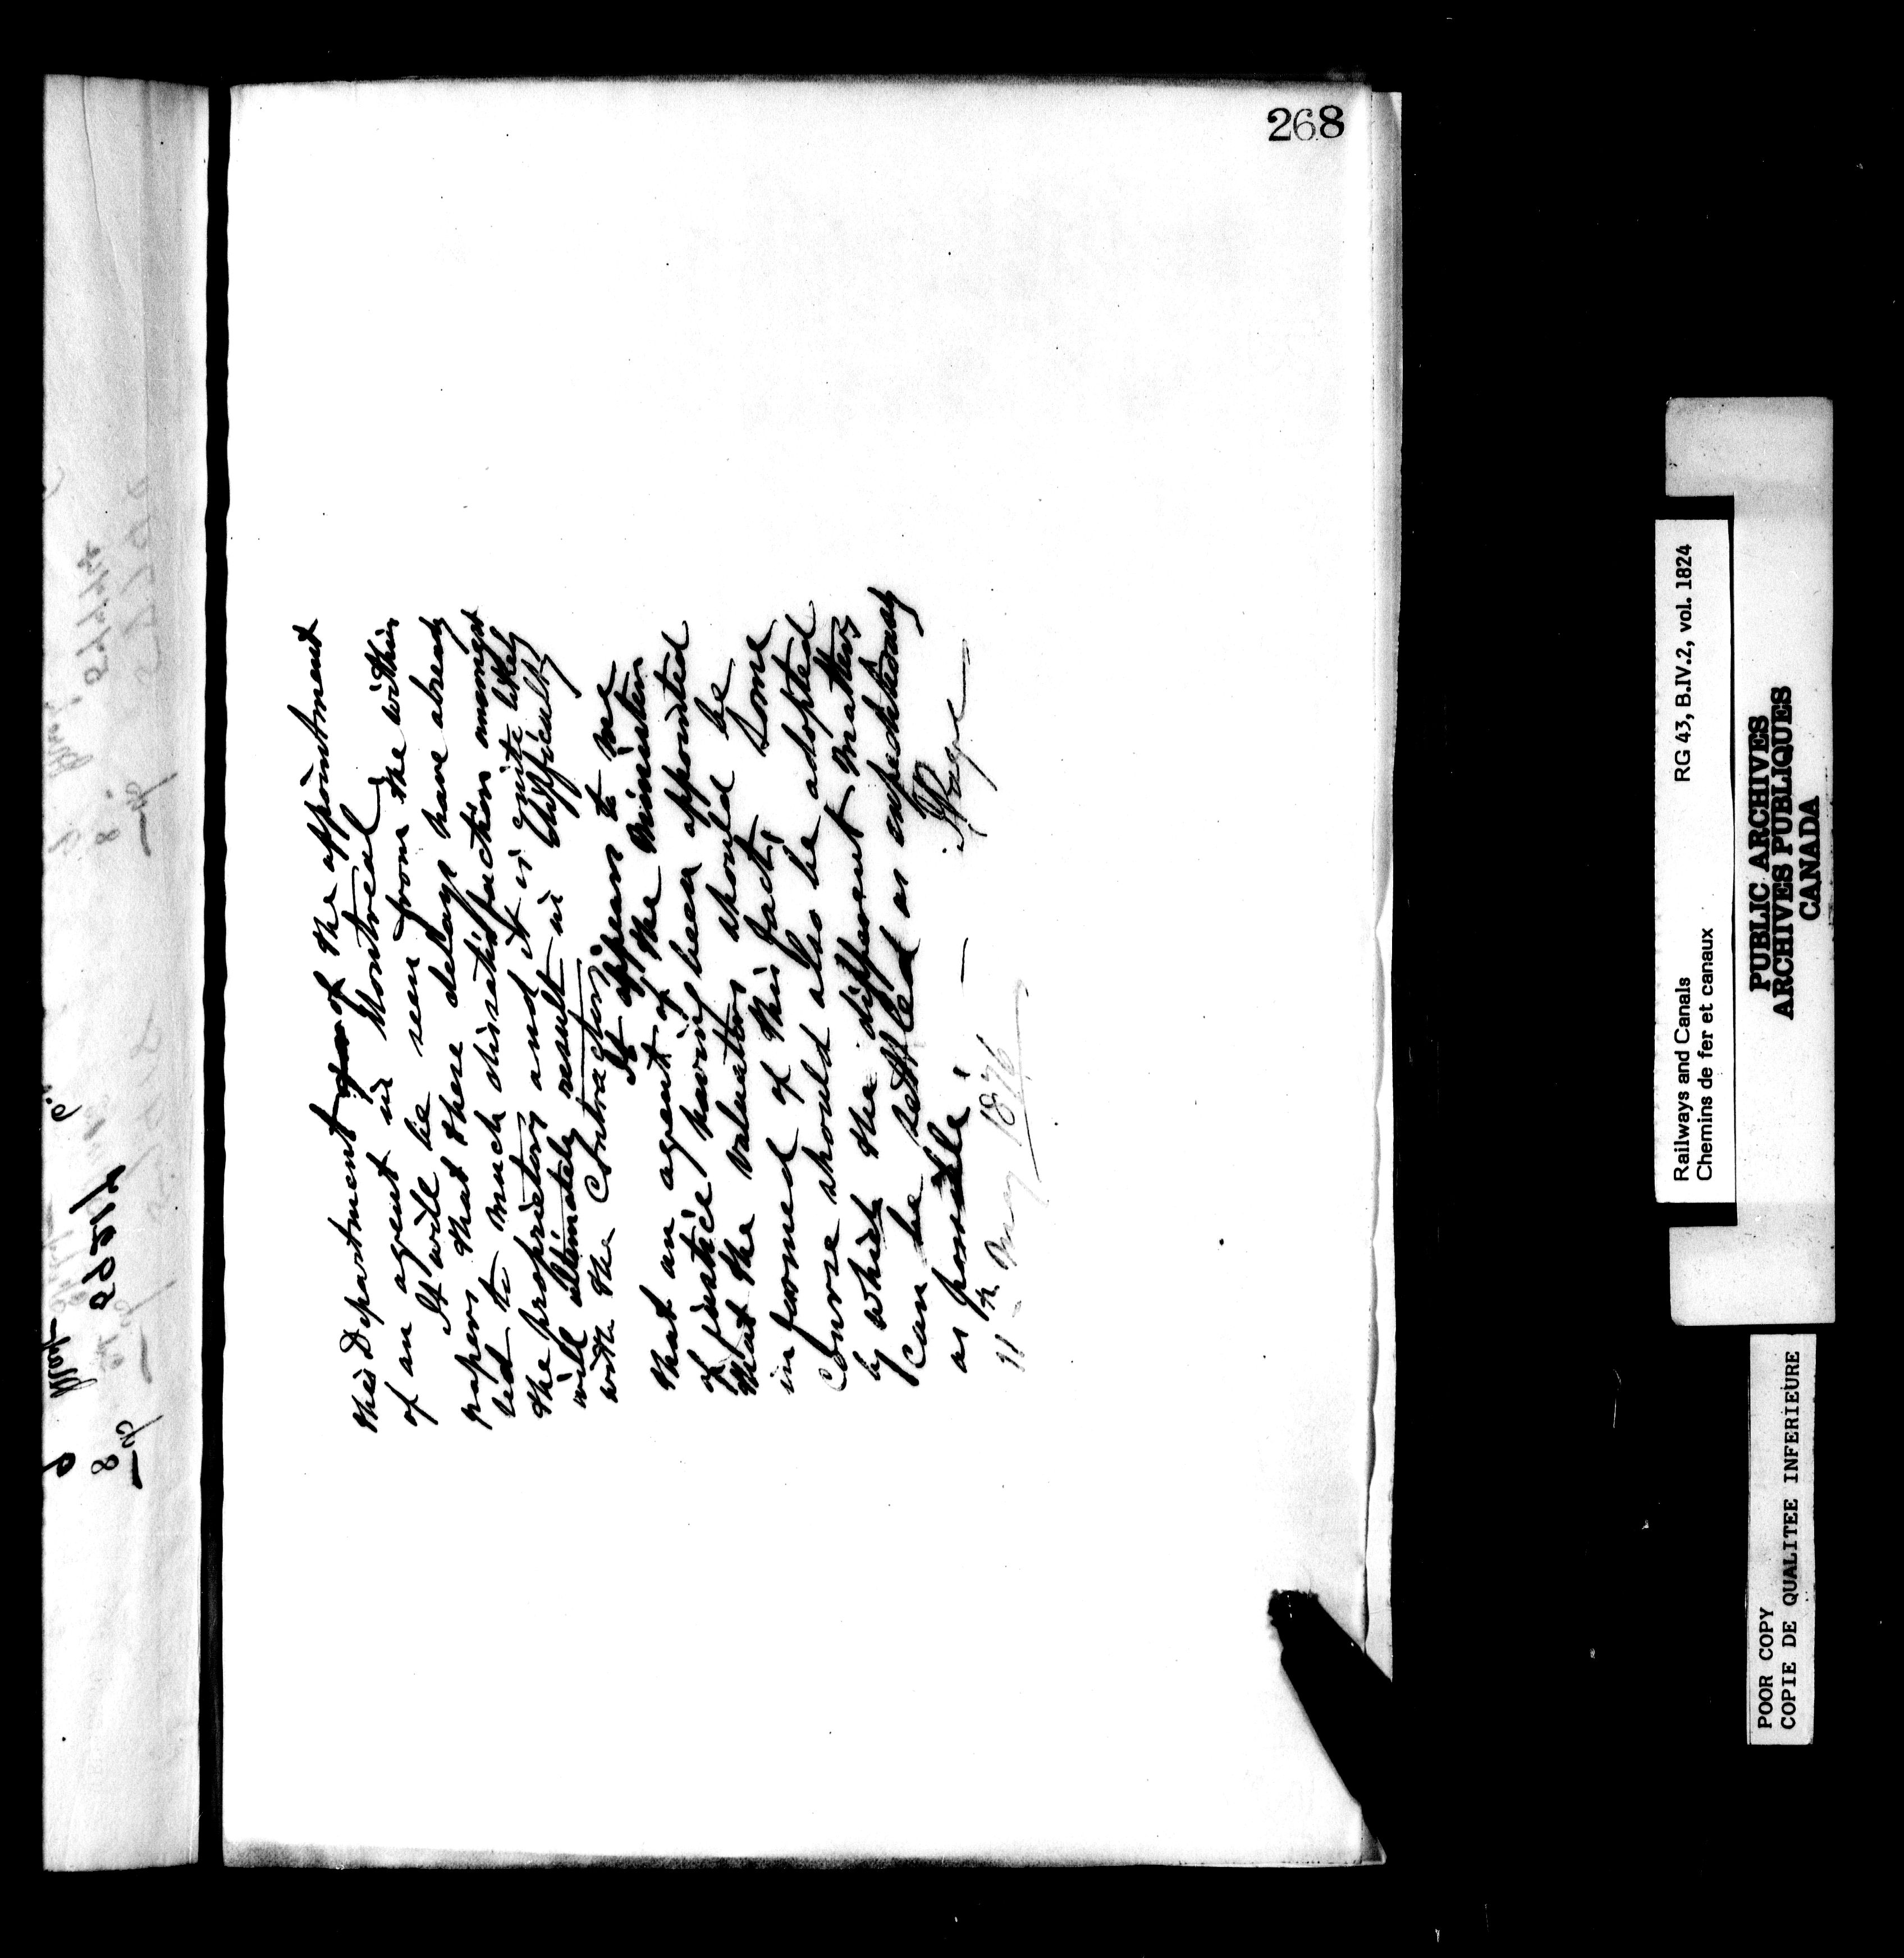 268
this Department of the appointment
of an agent in Montreal
It will be seen from the within
papers that these delays have already
led to much dissatisfaction amongst
the proprietors and it is quite likely
will ultimately result in difficulty
with the Contractors
It appears to me
that an agent of the Minister
of Justice having been appointed
that the valuators should be
informed of this fact; Some
Course should also be adopted
by which the different matters
can be settled as expeditiously
as possible. —
J Page
11th May 1876
Railways and Canals RG 43, B.IV.2, vol. 1824
Chemins de fer et canaux
PUBLIC ARCHIVES
ARCHIVES PUBLIQUES
CANADA
POOR COPY
COPIE DE QUALITEE INFERIEURE